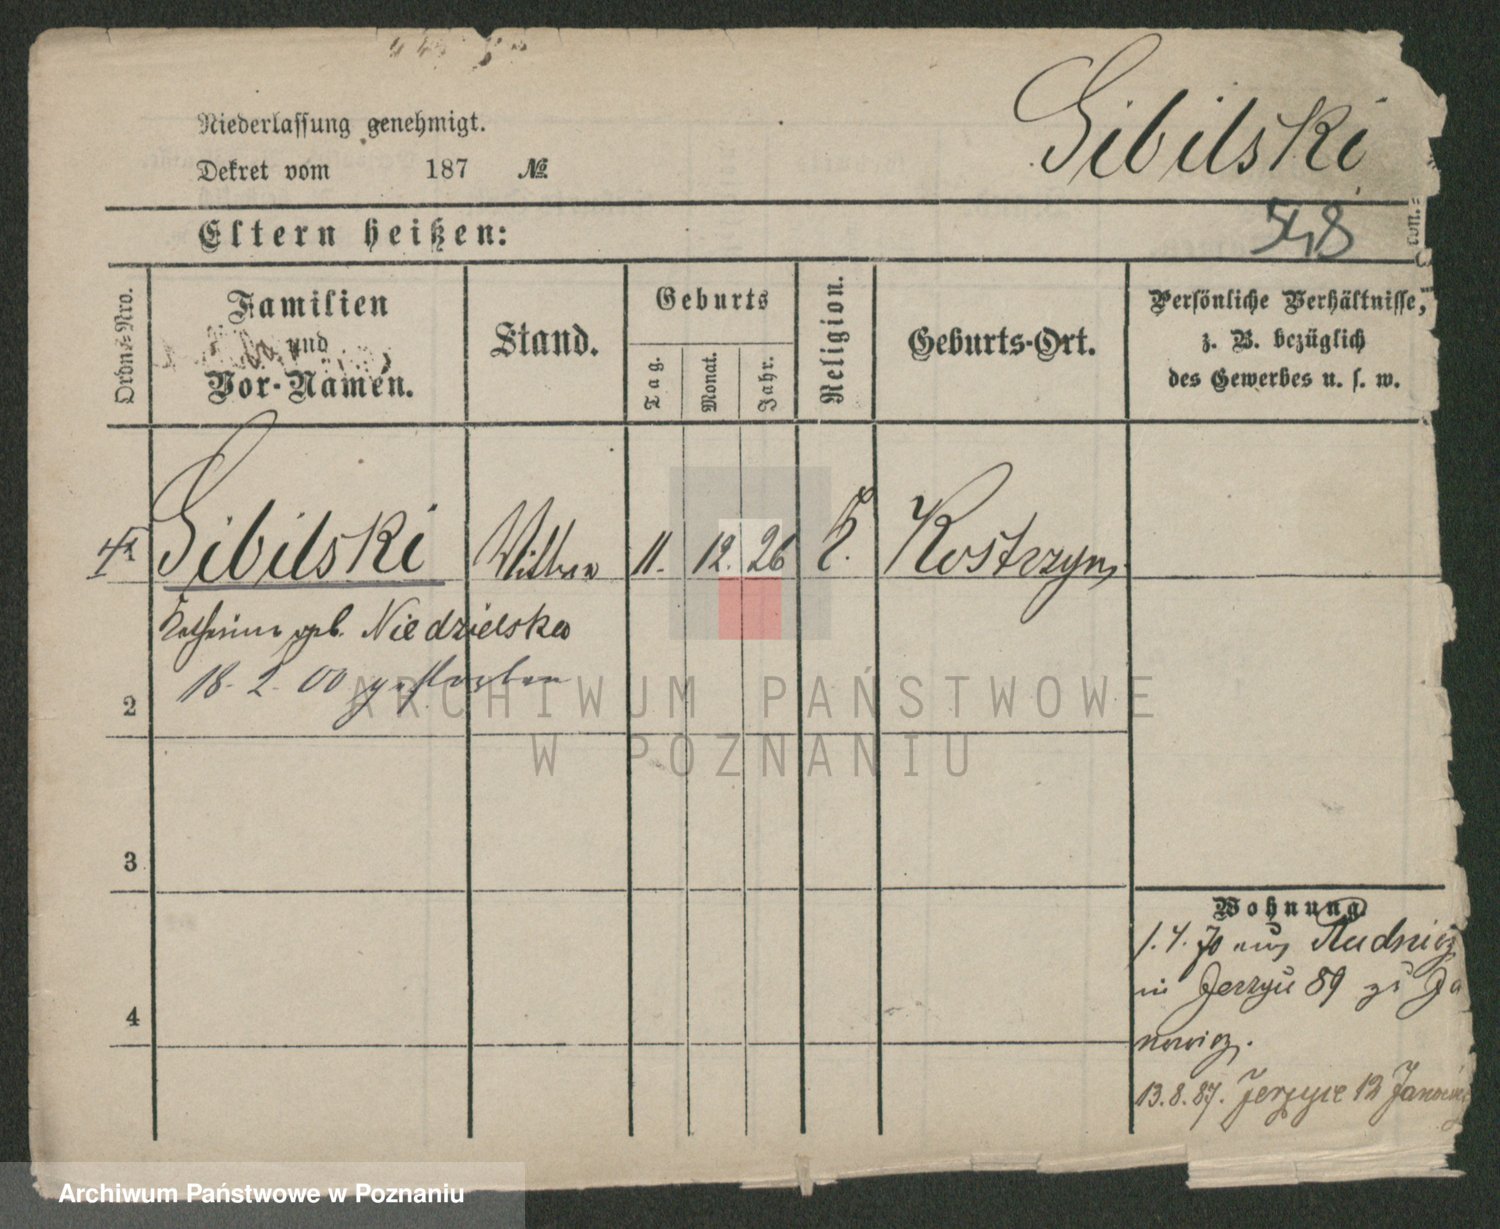 Gibilski
Niederlassung genehmigt.
Dekret vom 187 №
548
Eltern heißen:
Ordn.-Nro.
Familien
und
Vor-Namen.
Stand.
Geburts
Tag.
Monat.
Jahr.
Religion.
Geburts-Ort.
Persönliche Verhältnisse,
z. B. bezüglich
des Gewerbes u. s. w.
Gibilski 11. 12. 26 K. Kostrzyn
geb. Niedzielska
18. 2. 00 gestorben
2
3
4
Wohnung.
1. 4. 70 aus Rudnicz
in Jerzyce 89 zu Ja
nowicz.
13. 8. 87. Jerzyce 12
ARCHIWUM PAŃSTWOWE
W POZNANIU
Archiwum Państwowe w Poznaniu